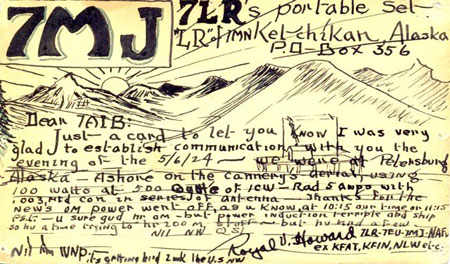 7MJ
7LR's portable Set-
"LR" of 7MN Ketchikan, Alaska
P.O-Box 356
Dear 7AIB:
Just a card to let you know I was very
glad to establish communication with you the
evening of the 5/6/24 - we were at Petersburg
Alaska - Ashore on the cannery's aerial using
100 watts at 500 of ICW - Rad 5 Amps with
.003 Mfd con in series of antenna Thanks for the
News om power went off as u know at 10:15 our time or 11:15
PST - u sure gud hr om - but power induction terrible abd ship
so hv a time trying to hr 200 m stuff - but hv had a few
Nil NW QSL
Nil Am WNP its getting hird 2 wk the U.S NW
Royal V. Howard 7LR-7EU-7MJ-NAF
ex KFAT, KFIN, NLW etc.